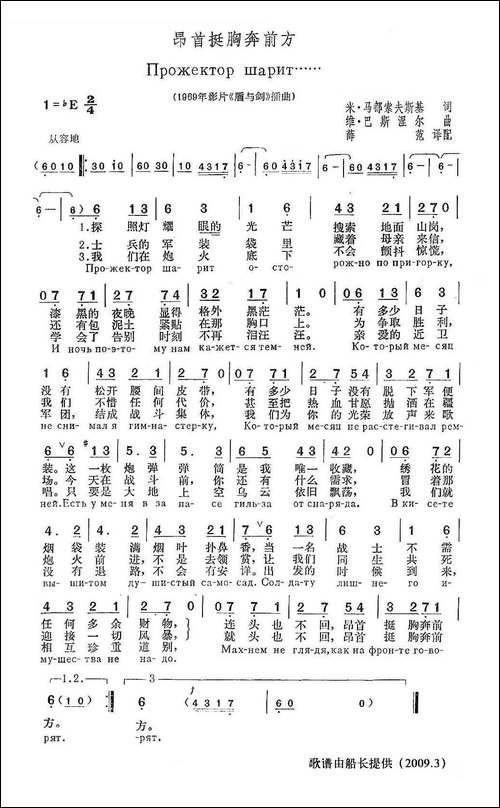 昂首挺胸奔前方
Прожектор шарит……
1=♭E 2/4
(1969年影片《盾与剑》插曲)
米·马都索夫斯基 词
维·巴斯涅尔 曲
薛 范 译配
从容地
(6010 | 3010 10 | 6030 10 | 4317 | 6 - | 6 1201 | 6 - | 6010 4317 |
6 - | 6) 6 | 1 3 | 6 3 | 1 6 | 4 3 | 2 1 | 2 7 0 |
1.探 照灯 耀 眼的 光 芒 搜索 地面 山岗,
2.士 兵的 军 装 袋 里 藏着 母亲 来信,
3.我 们在 炮 火 底 下 不会 颤抖 惊慌,
Про-жек-тор ша-рит о-сто- рож-но по при-гор-ку,
0 7 7 1 | 2 7 | 7 4 | 3 2 | 1 7 | 1 0 | 0 6 1 3 | 6 3 |
漆 黑的 夜晚 显得 格外 黑茫 茫。 有 多少 日 子
还 有包 泥土 紧贴 在那 胸口 上。 为 争取 胜 利,
学 会了 告别 时刻 不再 泪汪 汪。 亲 爱的 近 卫
И ночь по-э-то- му нам ка-жет-ся тем- ней. Ко-то-рый ме-сяц
1 6 | 4 3 | 2 1 | 2 7 0 | 0 7 7 1 | 2 7 | 7 4 | 3 2 1 7 |
没 有 松开 腰间 皮 带, 有 多少 日 子 没有 脱 下 军 便
我 们 不惜 任何 代 价, 甚 至把 热 血 甘愿 抛 洒 在 疆
军 团, 结成 战斗 集 体, 我 们为 你 的 光荣 放 声 来 歌
не сни-мал я гим-на-стер-ку, Ко-то-рый ме-сяц не рас-сте-ги-вал рем-
装。这 一枚 炮 弹 弹 筒 是 我 唯一 收藏, 绣 花的
场。今 天在 战 斗 前,你 还 有 什么 需求, 冒 着那
唱。只 要是 大 地 上 空 乌 云 依旧 飘荡, 我 们就
ней.Есть у ме-ня в за па-се гиль-за от сна-ря-да. В ки-се-те
烟 袋 装 满 烟 叶 扑 鼻 香,当 一 名 战 士 不 需
炮 火 前 进,不 是 去 领 赏,让 我 们 同 生 共 死
没 有 退 路,不 会 有 安 详。出 发 的 时 候 到 来,
вы-ши-том ду-ши-стый са-мо-сад. Сол-да-ту лиш-не-го и-
4 3 | 2 1 | 2 7 0 | 0 7 7 1 | 2 7 | 7 4 | 3 2 7 1 |
任 何 多 余 财 物,
迎 接 一 切 风 暴,
相 互 珍 重 道 别,
连 头 也 不 回,昂 首 挺 胸奔 前
就 头 也 不 回,昂 首 挺 胸奔 前
Мах-нем не гля-дя,как на фрон-те го-во-
му-ще-ства не на-до.
1.2. 3.
6 (1 0) :| 6 - | (4317 | 6010 | 6 0) ‖
方。 方。
рят. -рят.
歌谱由船长提供 (2009.3)